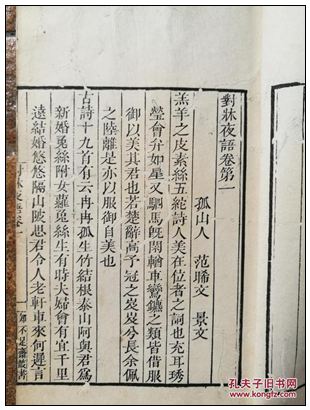 對牀夜語卷第一
孤山人 范晞文 景文
羔羊之皮素絲五紽詩人美在位者之詞也充耳琇
瑩會弁如星又駟馬旣閑輶車鸞鑣之類皆借服
御以美其君也若楚辭高予冠之岌岌兮長余佩
之陸離是亦以服御自美也
古詩十九首有云冉冉孤生竹結根泰山阿與君爲
新婚兔絲附女蘿兔絲生有時夫婦會有宜千里
遠結婚悠悠隔山陂思君令人老軒車來何遲言
知不足齋叢書
孔夫子旧书网